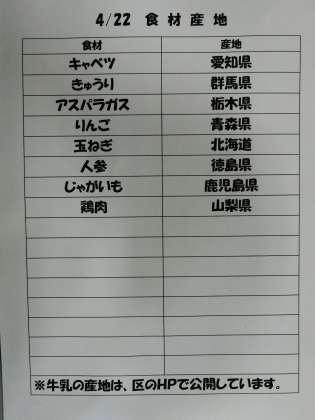 4/22 食材産地
食材 産地
キャベツ 愛知県
きゅうり 群馬県
アスパラガス 栃木県
りんご 青森県
玉ねぎ 北海道
人参 徳島県
じゃがいも 鹿児島県
鶏肉 山梨県
※牛乳の産地は、区のHPで公開しています。